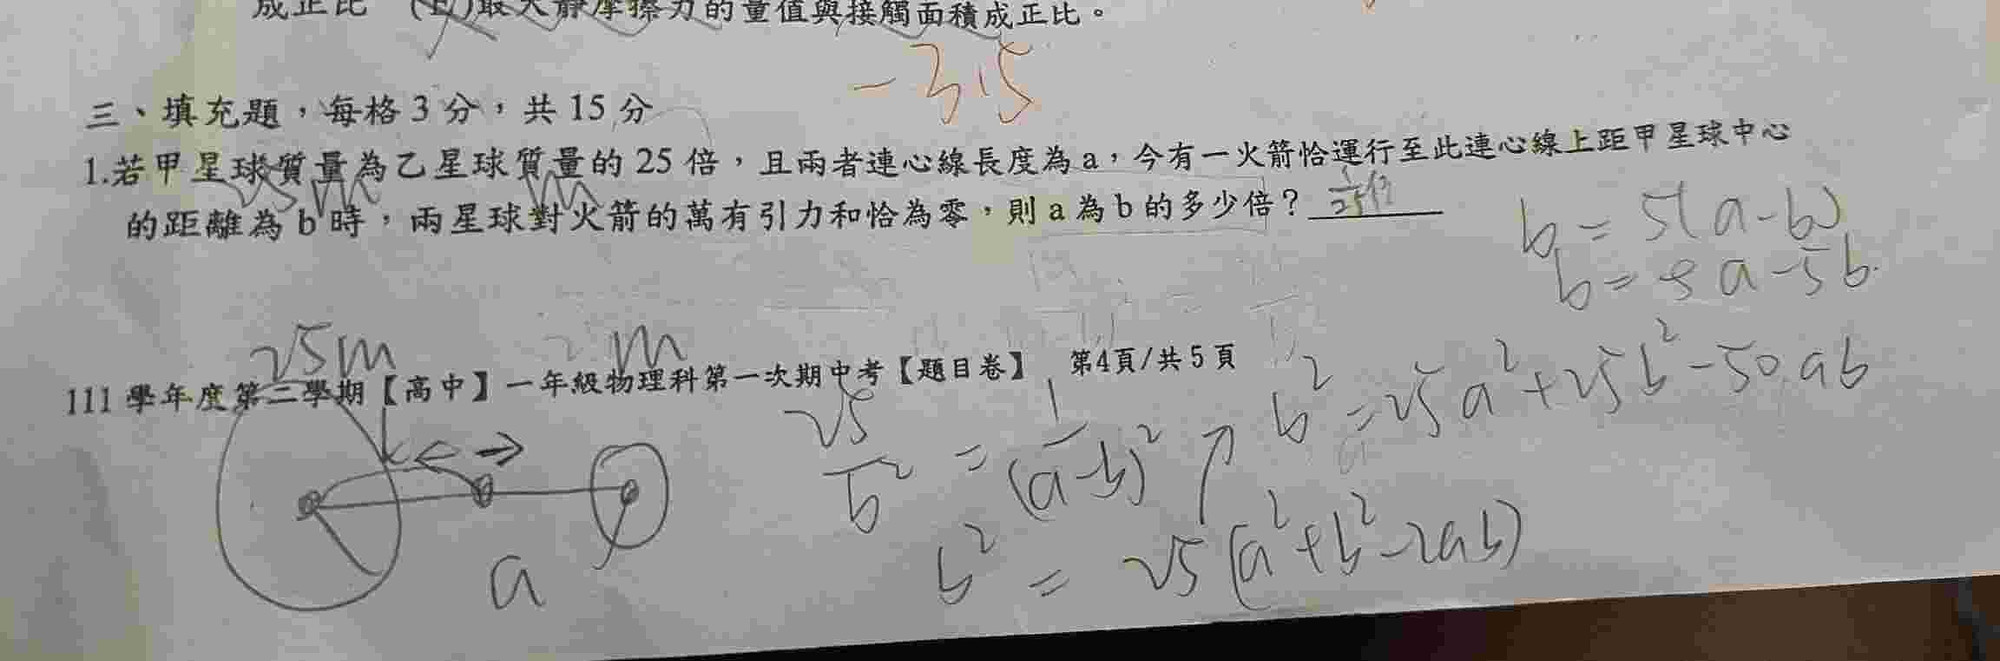 成正比 (E)最大靜摩擦力的量值與接觸面積成正比。
-3.5
三、填充題,每格3分,共15分
1.若甲星球質量為乙星球質量的25倍,且兩者連心線長度為a,今有一火箭恰運行至此連心線上距甲星球中心
25m m
的距離為b時,兩星球對火箭的萬有引力和恰為零,則a為b的多少倍?
b=5(a-b)
b=5a-5b
25m m
111學年度第二學期【高中】一年級物理科第一次期中考【題目卷】 第4頁/共5頁
25/b²=1/(a-b)²
b²=25a²+25b²-50ab
b²=25(a²+b²-2ab)
a